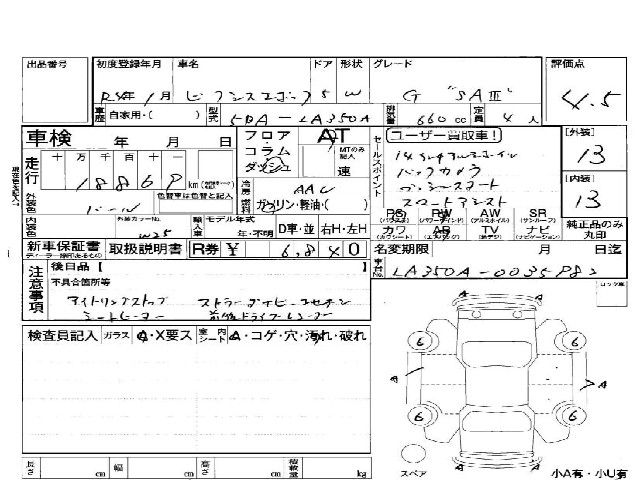 出品番号 初度登録年月 車名 ドア 形状 グレード 評価点
R4年1月 5 W G "SAⅢ" 4.5
車歴 自家用・( ) 型式 5BA-LA350A 排気量 660cc 定員 4人
車検 年 月 日 フロア・コラム・ダッシュ AT セールスポイント ユーザー買取車! [外装]
走行 十 万 千 百 十 一 MTのみ記入 速 14インチアルミホイール 13
18869 km バックカメラ
冷房 AAC プッシュスタート [内装]
外装色 パール 色替車は色替と記入 燃料 ガソリン・軽油・( ) スマートアシスト 13
内装色 外装カラーNo. W25 輸入車 モデル年式 年・不明 D車・並 右H・左H
PS(パワステ) PW(パワーウインド) AW(アルミホイル) SR(サンルーフ)
カワ(カワシート) AB(エアバッグ) TV(テレビ) ナビ(ナビゲーション) 純正品のみ丸印
新車保証書 取扱説明書 R券 ¥ 6,840 名変期限 月 日迄
注意事項 後日品【 】 車台No. 
不具合箇所等 ロック車
アイドリングストップ
シートヒーター 前後ドライブレコーダー
検査員記入 ガラス A・X要ス 室内シート A・コゲ・穴・汚れ・破れ
6 6
A A
6 6
A A
スペア 小A有・小U有
長さ cm 幅 cm 高さ cm 積載量 kg